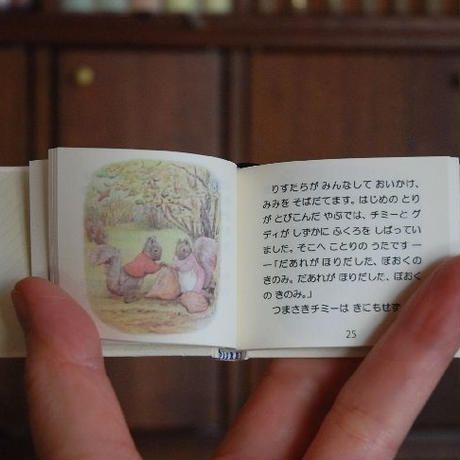 りすたらが みんなして おいかけ、
みみを そばだてます。はじめの とり
が とびこんだ やぶでは、チミーと グ
ディが しずかに ふくろを しばってい
ました。そこへ ことりの うたです ―
―「だあれが ほりだした、ぼおくの
きのみ。だあれが ほりだした、ぼおく
の きのみ。」
つまさきチミーは きにもせず
25